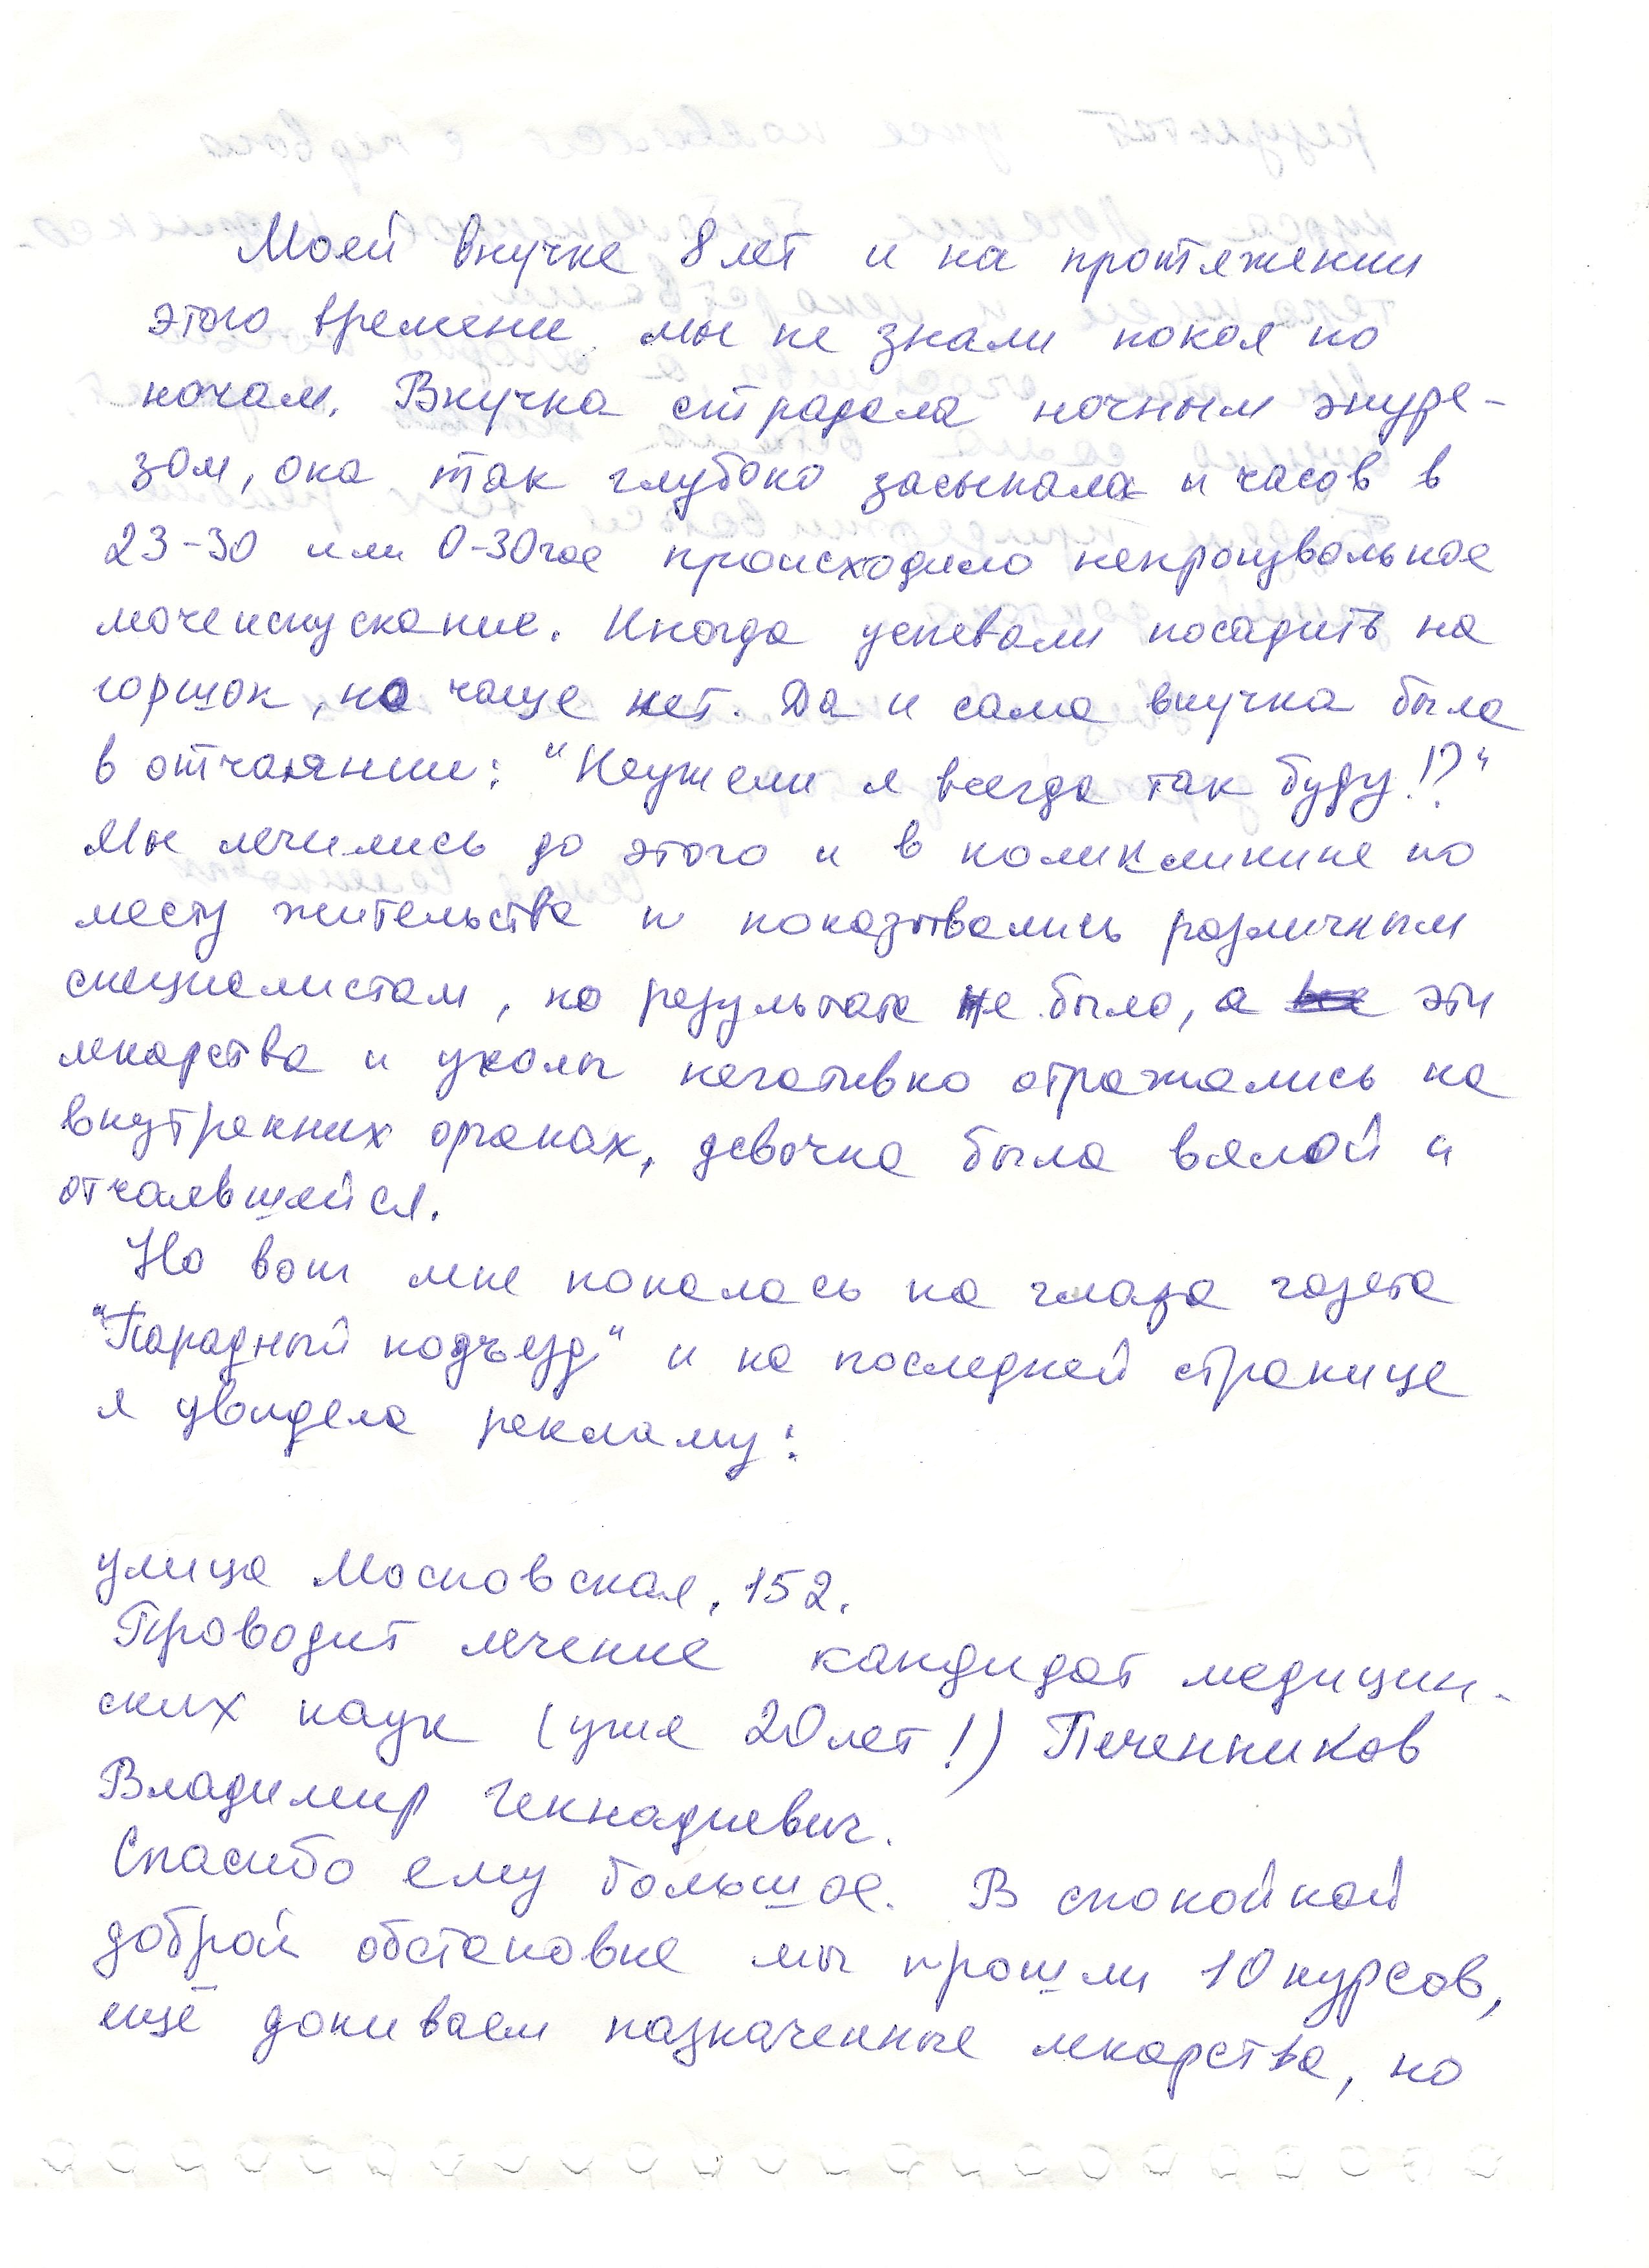 Моей внучке 8 лет и на протяжении
этого времени мы не знали покоя по
ночам. Внучка страдала ночным энуре-
зом, она так глубоко засыпала и часов в
23-30 или 0-30час происходило непроизвольное
мочеиспускание. Иногда успевали посадить на
горшок, но чаще нет. Да и сама внучка была
в отчаянии: "Неужели я всегда так буду!?"
Мы лечились до этого и в поликлинике по
месту жительства и показывались различным
специалистам, но результата не было, а эти
лекарства и уколы негативно отражались на
внутренних органах, девочка была вялой и
отчаявшейся.
Но вот мне попалась на глаза газета
"Парадный подъезд" и на последней странице
я увидела рекламу:
улица Московская, 152.
Проводит лечение кандидат медицин-
ских наук (уже 20 лет!) Печенников
Владимир Геннадиевич.
Спасибо ему большое. В спокойной
доброй обстановке мы прошли 10 курсов,
ещё допиваем назначенные лекарства, но